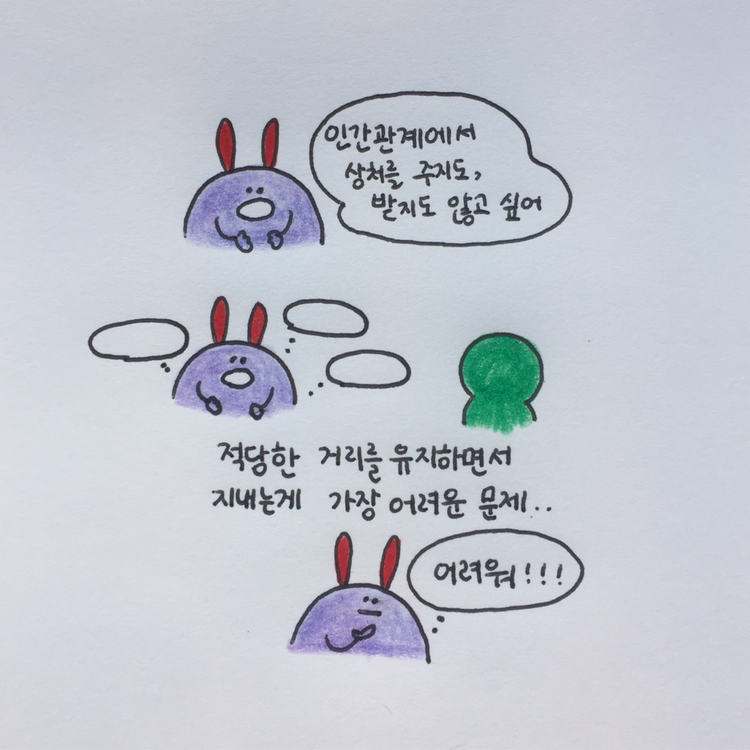 인간관계에서
상처를 주지도,
받지도 않고 싶어
적당한 거리를 유지하면서
지내는게 가장 어려운 문제..
어려워!!!